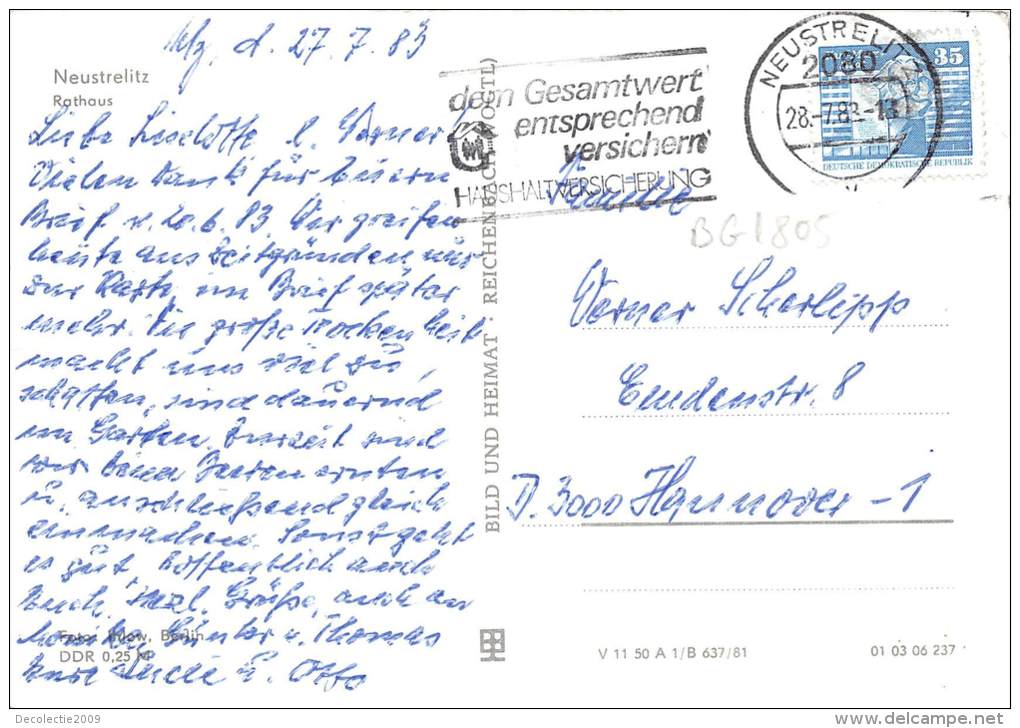 d. 27.7.83
Neustrelitz
Rathaus
Liebe Liselotte u. Werner!
Vielen Dank für Euern
Brief v. 20.6.83. Wir greifen
heute aus Zeitgründen nur
zur Karte, im Brief später
mehr. Die große Trockenheit
macht uns viel zu
schaffen, sind dauernd
im Garten. Zurzeit sind
wir beim Beeren ernten
u. anschließend gleich
einmachen. Sonst geht
es gut hoffentlich auch
Euch. Herzl. Grüße, auch an
Monika, Günter u. Thomas
Eure Lucie u. Otto
Foto: Ihlow, Berlin
DDR 0,25 M
BILD UND HEIMAT · REICHENBACH (VOGTL)
dem Gesamtwert
entsprechend
versichern
HAUSHALTVERSICHERUNG
NEUSTRELITZ
2080
28.-7.83.-13
35
DEUTSCHE DEMOKRATISCHE REPUBLIK
Familie
BG1805
Werner Scherlipp
Emdenstr. 8
D. 3000 Hannover-1
V 11 50 A 1/B 637/81
01 03 06 237
Decolectie2009
delcampe.net